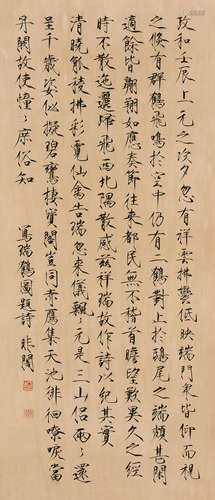 政和壬辰上元之次夕忽有祥雲拂鬱低映端門眾皆仰而視
之倏有群鶴飛鳴於空中仍有二鶴對止於鴟尾之端頗甚閒
適餘皆翱翔如應奏節往來都民無不稽首瞻望歎異久之經
時不散迤邐歸飛西北隅散感茲祥瑞故作詩以紀其實
清曉觚稜拂彩霓仙禽告瑞忽來儀飄〻元是三山侶兩〻還
呈千歲姿似擬碧鸞棲寶閣豈同赤鴈集天池徘徊嘹唳當
丹闕故使憧〻庶俗知
寫瑞鶴圖題詩 非闇